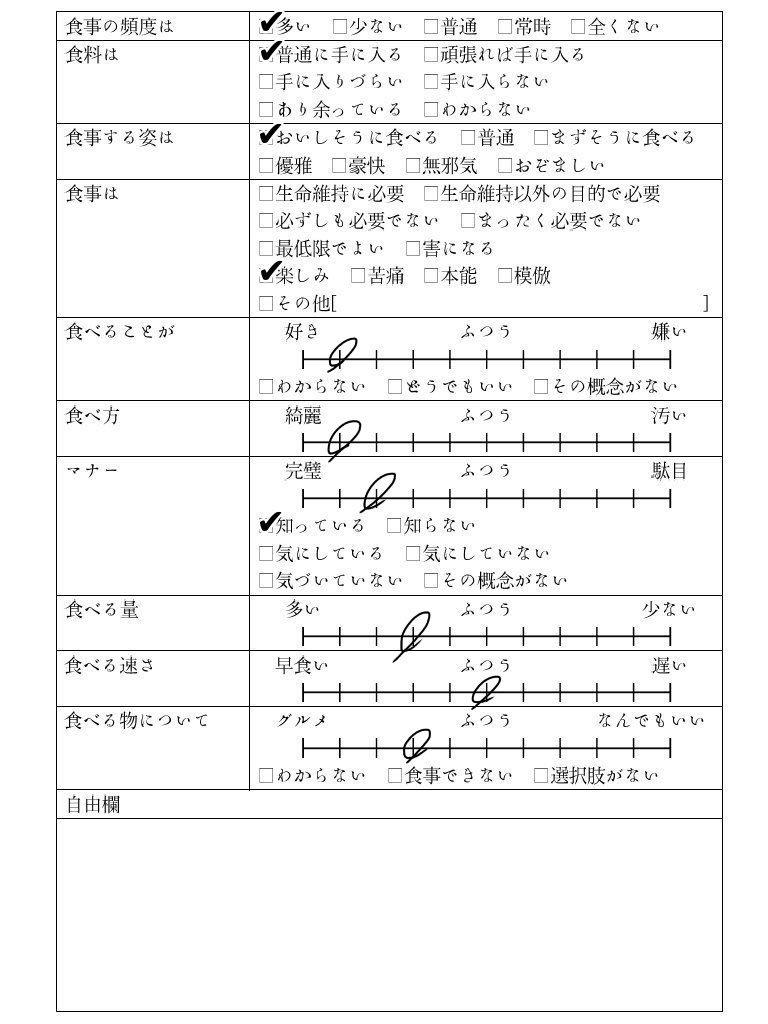 食事の頻度は ✔多い □少ない □普通 □常時 □全くない
食料は ✔普通に手に入る □頑張れば手に入る
□手に入りづらい □手に入らない
□あり余っている □わからない
食事する姿は ✔おいしそうに食べる □普通 □まずそうに食べる
□優雅 □豪快 □無邪気 □おぞましい
食事は □生命維持に必要 □生命維持以外の目的で必要
□必ずしも必要でない □まったく必要でない
□最低限でよい □害になる
✔楽しみ □苦痛 □本能 □模倣
□その他[ ]
食べることが 好き ふつう 嫌い
□わからない □どうでもいい □その概念がない
食べ方 綺麗 ふつう 汚い
マナー 完璧 ふつう 駄目
✔知っている □知らない
□気にしている □気にしていない
□気づいていない □その概念がない
食べる量 多い ふつう 少ない
食べる速さ 早食い ふつう 遅い
食べる物について グルメ ふつう なんでもいい
□わからない □食事できない □選択肢がない
自由欄